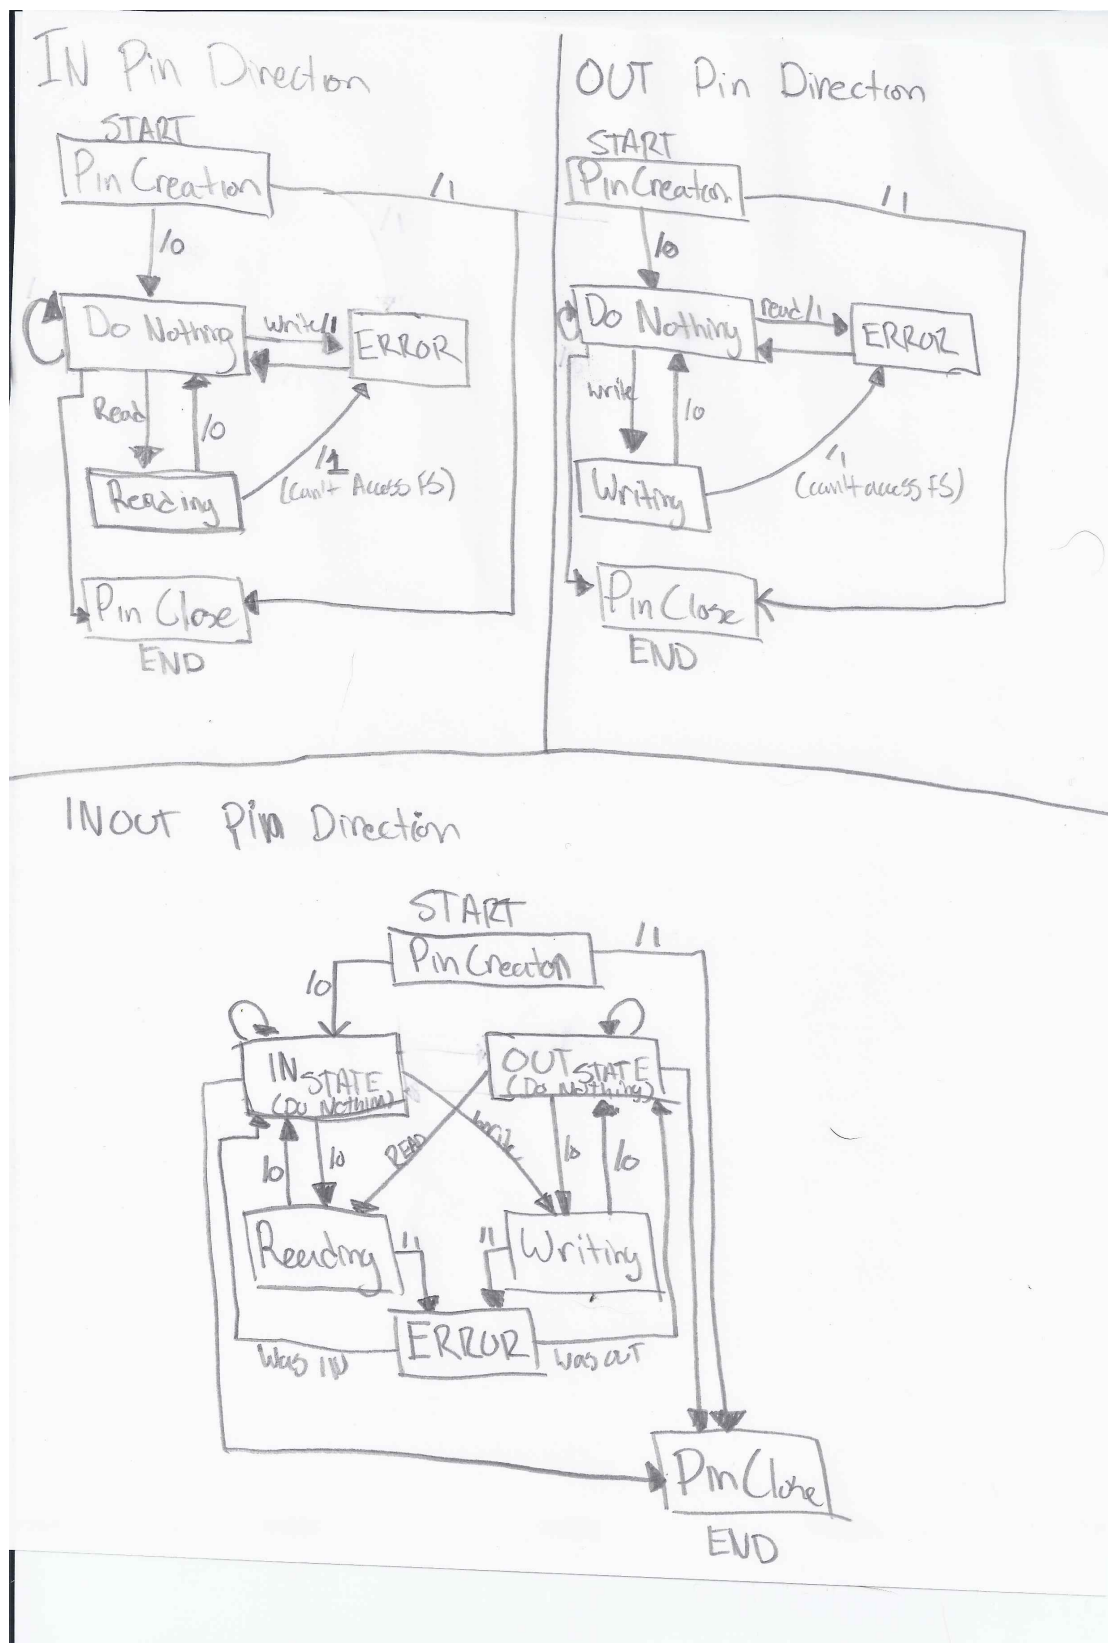 IN Pin Direction
START
Pin Creation
/1
/0
Do Nothing
Write/1
ERROR
Read
/0
/1
(Can't Access FS)
Reading
Pin Close
END
OUT Pin Direction
START
Pin Creation
/1
/0
Do Nothing
read/1
ERROR
write
/0
/1
(can't access FS)
Writing
Pin Close
END
INOUT Pin Direction
START
Pin Creation
/1
/0
IN STATE
(Do Nothing)
OUT STATE
(Do Nothing)
READ
write
/0
/0
/0
/0
Reading
/1
/1
Writing
ERROR
Was IN
Was OUT
Pin Close
END